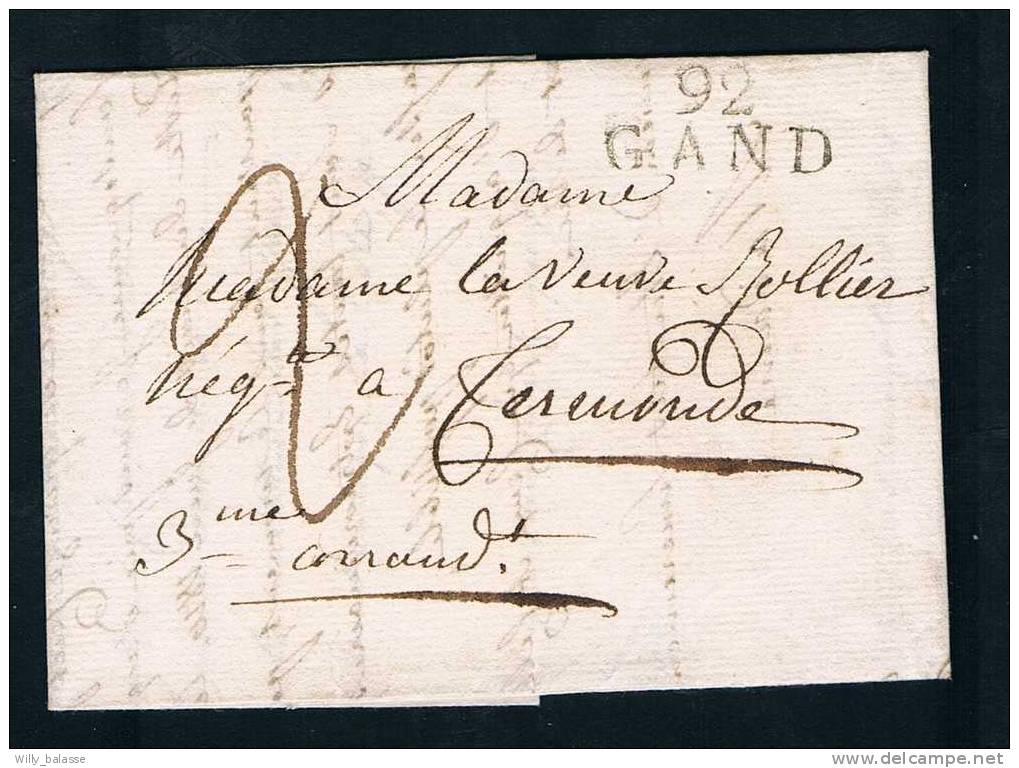 92
GAND
Madame
Madame la veuve Rollier
nég.t a Termonde
3me arrond.t
Willy_balasse
www.delcampe.net